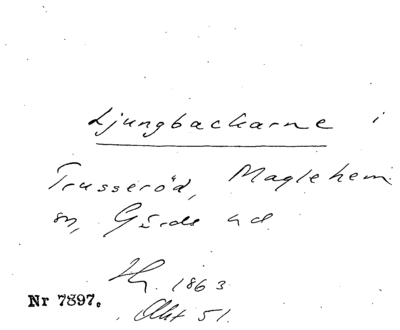 Ljungbackarne i
Trusseröd, Maglehem
sn, Gärds hd
Hy. 1863
Akt 51.
Nr 7897.